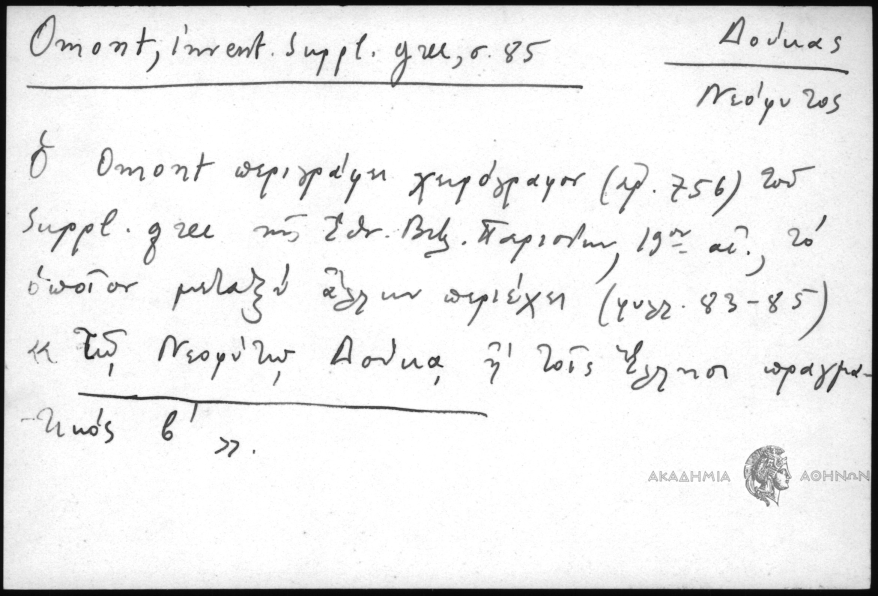 Omont, invent. Suppl. grec, σ. 85
Δούκας
Νεόφυτος
Ὁ Omont περιγράφει χειρόγραφον (ἀρ. 756) τοῦ
Suppl. grec τῆς Ἐθν. Βιβ. Παρισίων, 19ου αἰ., τὸ
ὁποῖον μεταξὺ ἄλλων περιέχει (φυλλ. 83-85)
« Τῷ Νεοφύτῳ Δούκᾳ ἢ τοῖς Ἕλλησι πραγμα-
-τικός β' ».
ΑΚΑΔΗΜΙΑ ΑΘΗΝΩΝ